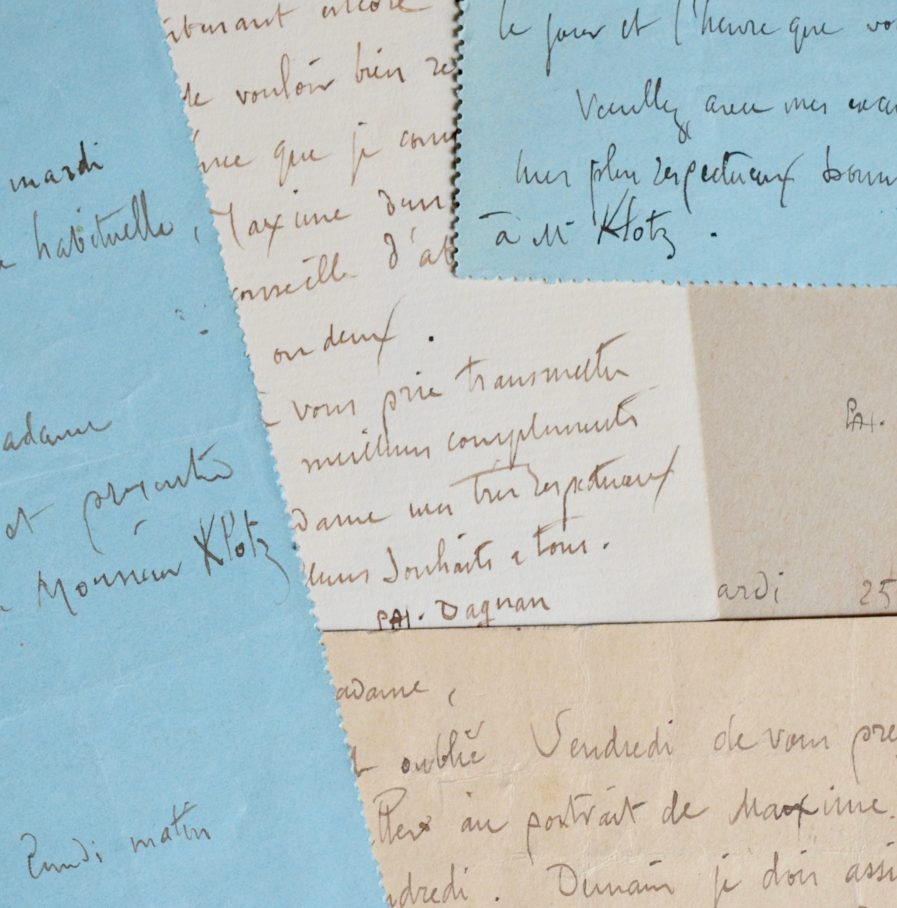 mardi
habituelle,
adame
et présenter
Monsieur Klotz
Lundi matin
encore
de vouloir bien
que je
Maxime dans
conseille d'at
ou deux.
vous prie transmettre
meilleurs compliments
dame mes très respectueux
leurs souhaits a tous.
PAJ. Dagnan
le jour et l'heure que vo
Veuillez, avec mes
mes plus respectueux
à Mr Klotz.
PAJ.
ardi 25
adame,
oublié Vendredi de vous pre
au portrait de Maxime.
dredi. Demain je dois assi